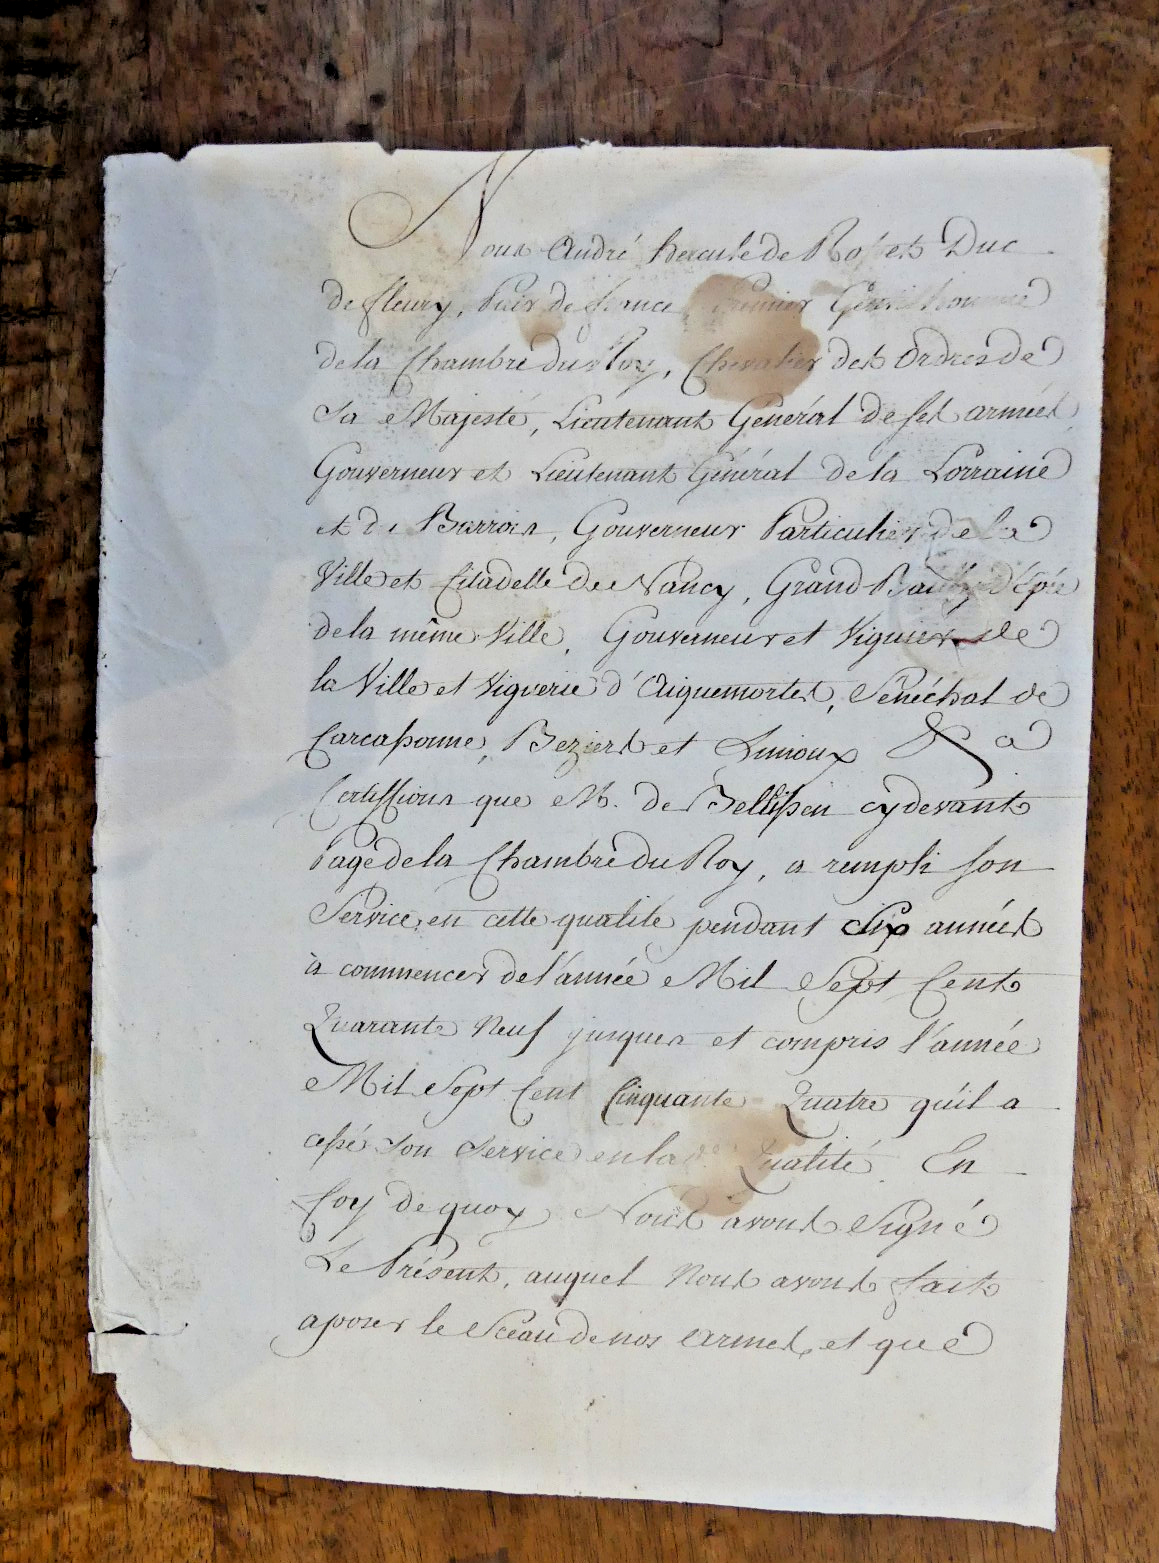 Nous André hercule de Rosset Duc
de fleury, Pair de france, Premier Gentilhomme
de la Chambre du Roy, Chevalier des Ordres de
Sa Majesté, Lieutenant Général de ses armées
Gouverneur et Lieutenant Général de la Lorraine
et du Barrois, Gouverneur Particulier de la
Ville et Citadelle de Nancy, Grand Bailly d'épée
de la même Ville, Gouverneur et Viguier de
la Ville et Viguerie d'Aiguemortes, Sénéchal de
Carcassonne, Beziers et Limoux &a
Certiffions que M. de Bellissen cy devant
Page de la Chambre du Roy, a rempli son
Service, en cette qualité pendant Six années
à commencer de l'année Mil Sept Cent
Quarante Neuf jusques et compris l'année
Mil Sept Cent Cinquante Quatre qu'il a
cessé Son Service en lade. Qualité. En
foy de quoy Nous avons Signé
Le Présent, auquel Nous avons fait
aposer le Sceau de nos armes, et que